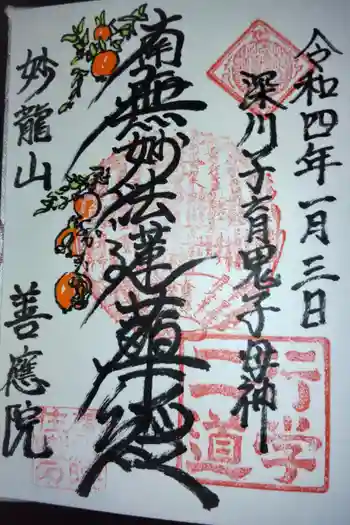 令和四年一月三日
深川子育鬼子母神
南無妙法蓮華経
妙龍山
善應院
行学
二道